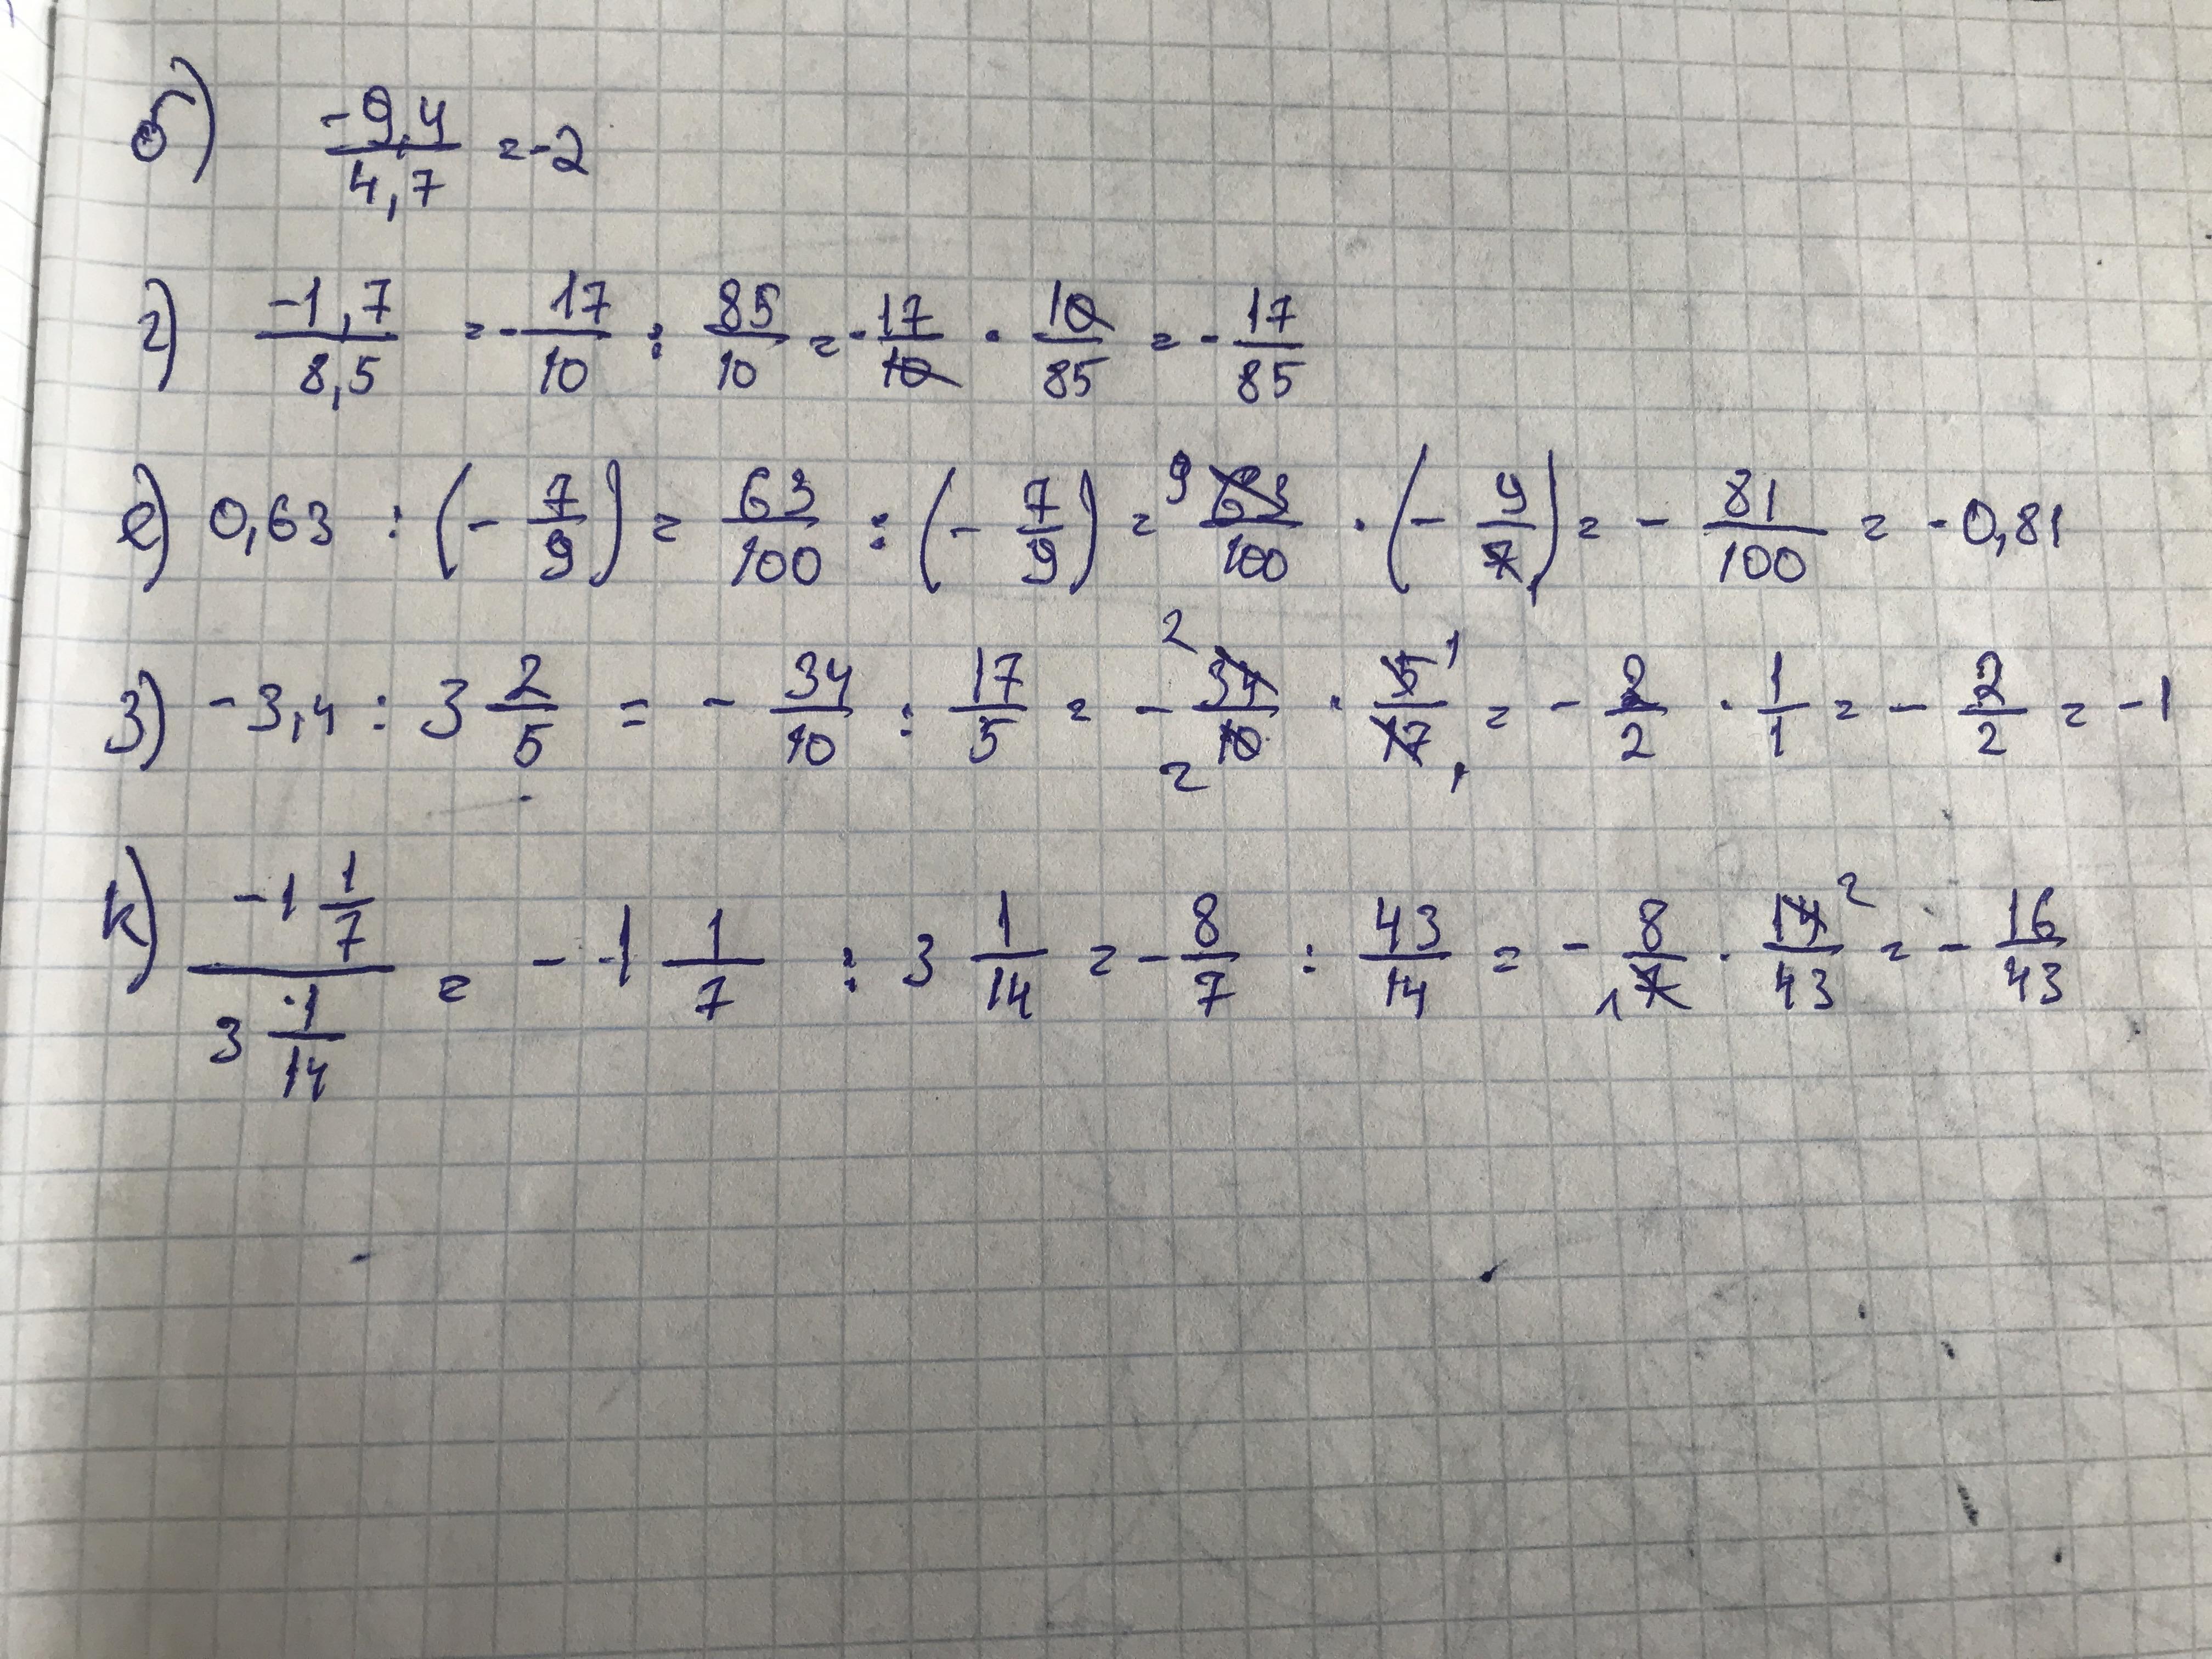 б) -9,4/4,7 = -2
г) -1,7/8,5 = - 17/10 : 85/10 = - 17/10 · 10/85 = - 17/85
е) 0,63 : (- 7/9) = 63/100 : (- 7/9) = 9 63/100 · (- 9/7 1) = - 81/100 = -0,81
з) -3,4 : 3 2/5 = - 34/10 : 17/5 = - 2 34/10 2 · 5 1/17 1 = - 2/2 · 1/1 = - 2/2 = -1
к) -1 1/7 / 3 1/14 = - 1 1/7 : 3 1/14 = - 8/7 : 43/14 = - 8/1 7 · 14 2/43 = - 16/43